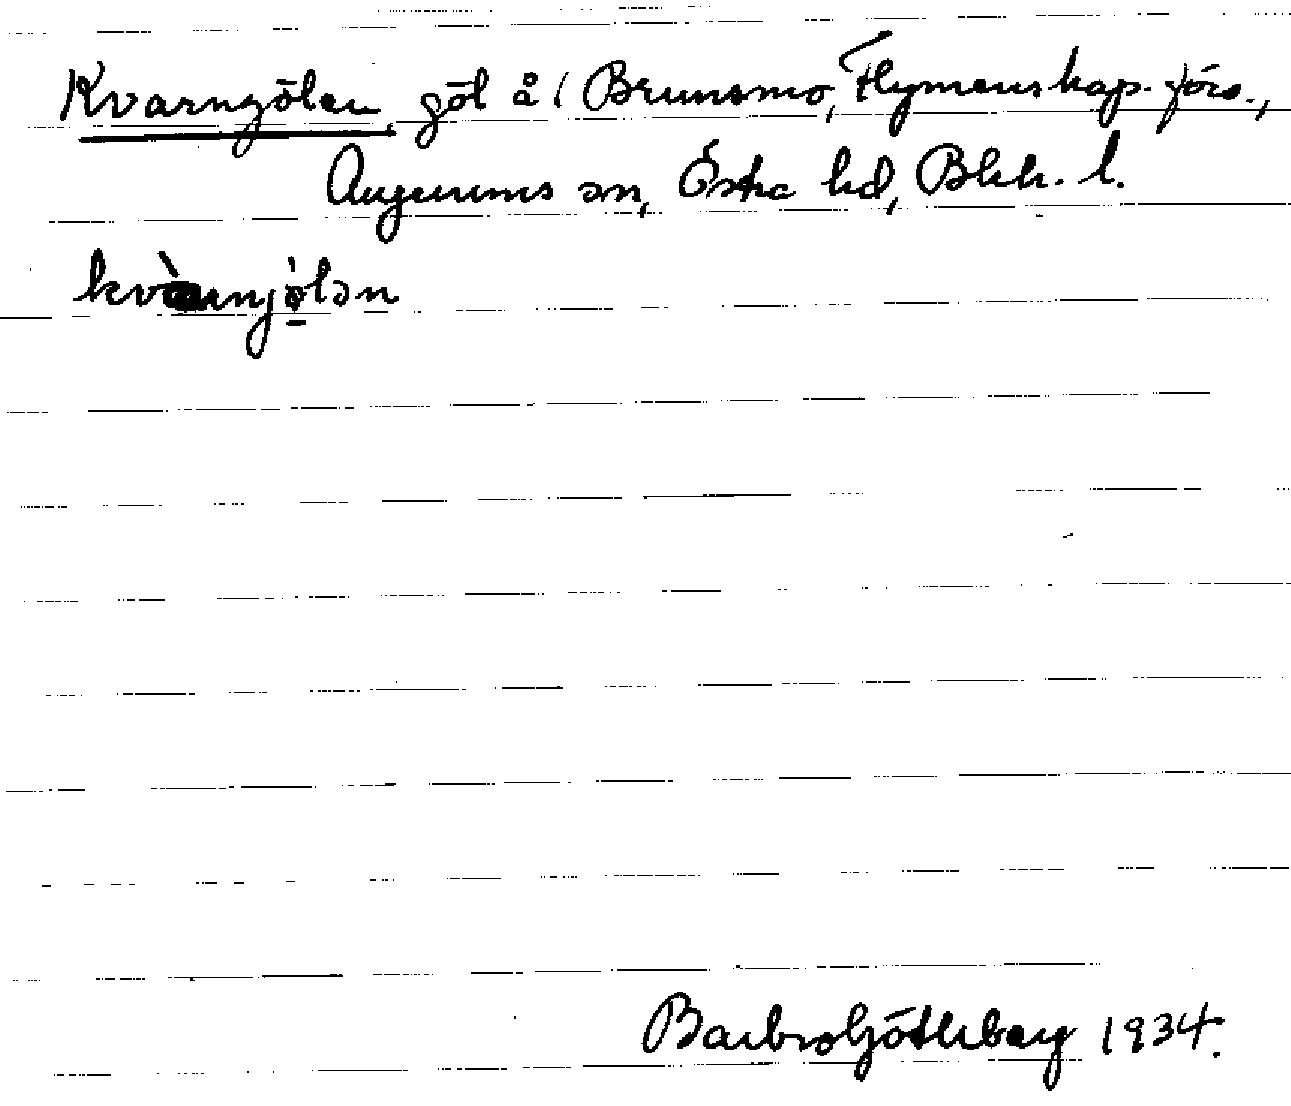 Kvarngölen, göl å 1 Brunsmo, Flymens kap. förs.,
Augerums sn, Östra hd, Blek. l.
kvàrnjö̀lən
Barbro Göthberg 1934.